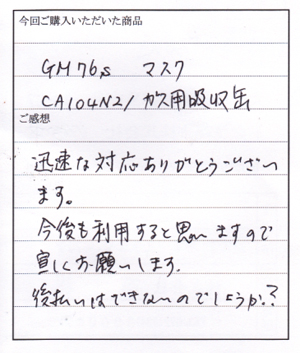 今回ご購入いただいた商品
GM76s マスク
CA104N2/ガス用吸収缶
ご感想
迅速な対応ありがとうござい
ます。
今後も利用すると思いますので
宜しくお願いします.
後払いはできないのでしょうか?